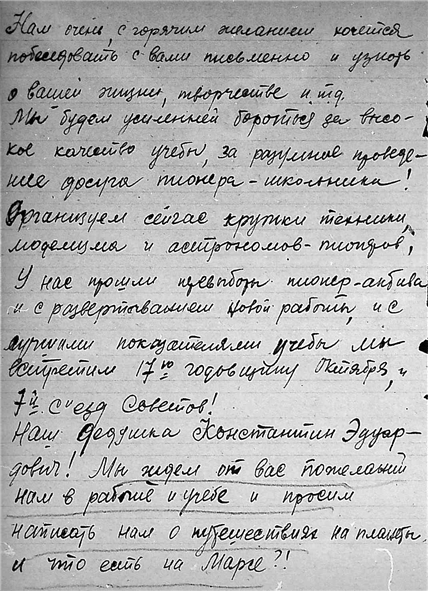 Нам очень, с горячим желанием хочется
побеседовать с вами письменно и узнать
о вашей жизни, творчестве и т.д.
Мы будем усиленней бороться за высо-
кое качество учебы, за разумное проведе-
ние досуга пионера-школьника!
Организуем сейчас кружки техники,
моделизма и астрономов-пионеров,
У нас прошли перевыборы пионер-актива
и с развертыванием новой работы, и с
лучшими показателями учебы мы
встретим 17ю годовщину Октября, и
7й съезд Советов!
Наш дедушка Константин Эдуар-
дович! Мы ждем от вас пожеланий
нам в работе и учебе и просим
написать нам о путешествиях на планеты,
и что есть на Марсе?!